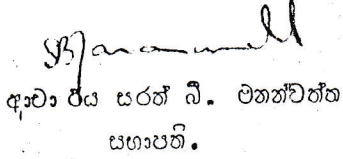 ආචාර්ය සරත් බී. මනත්වත්ත
සභාපති.